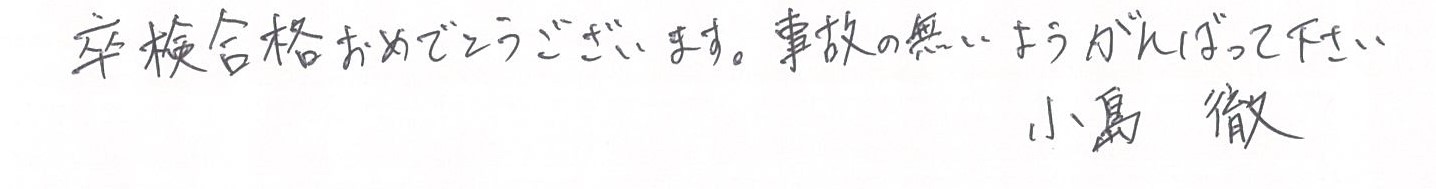 卒検合格おめでとうございます。事故の無いようがんばって下さい
小島 徹